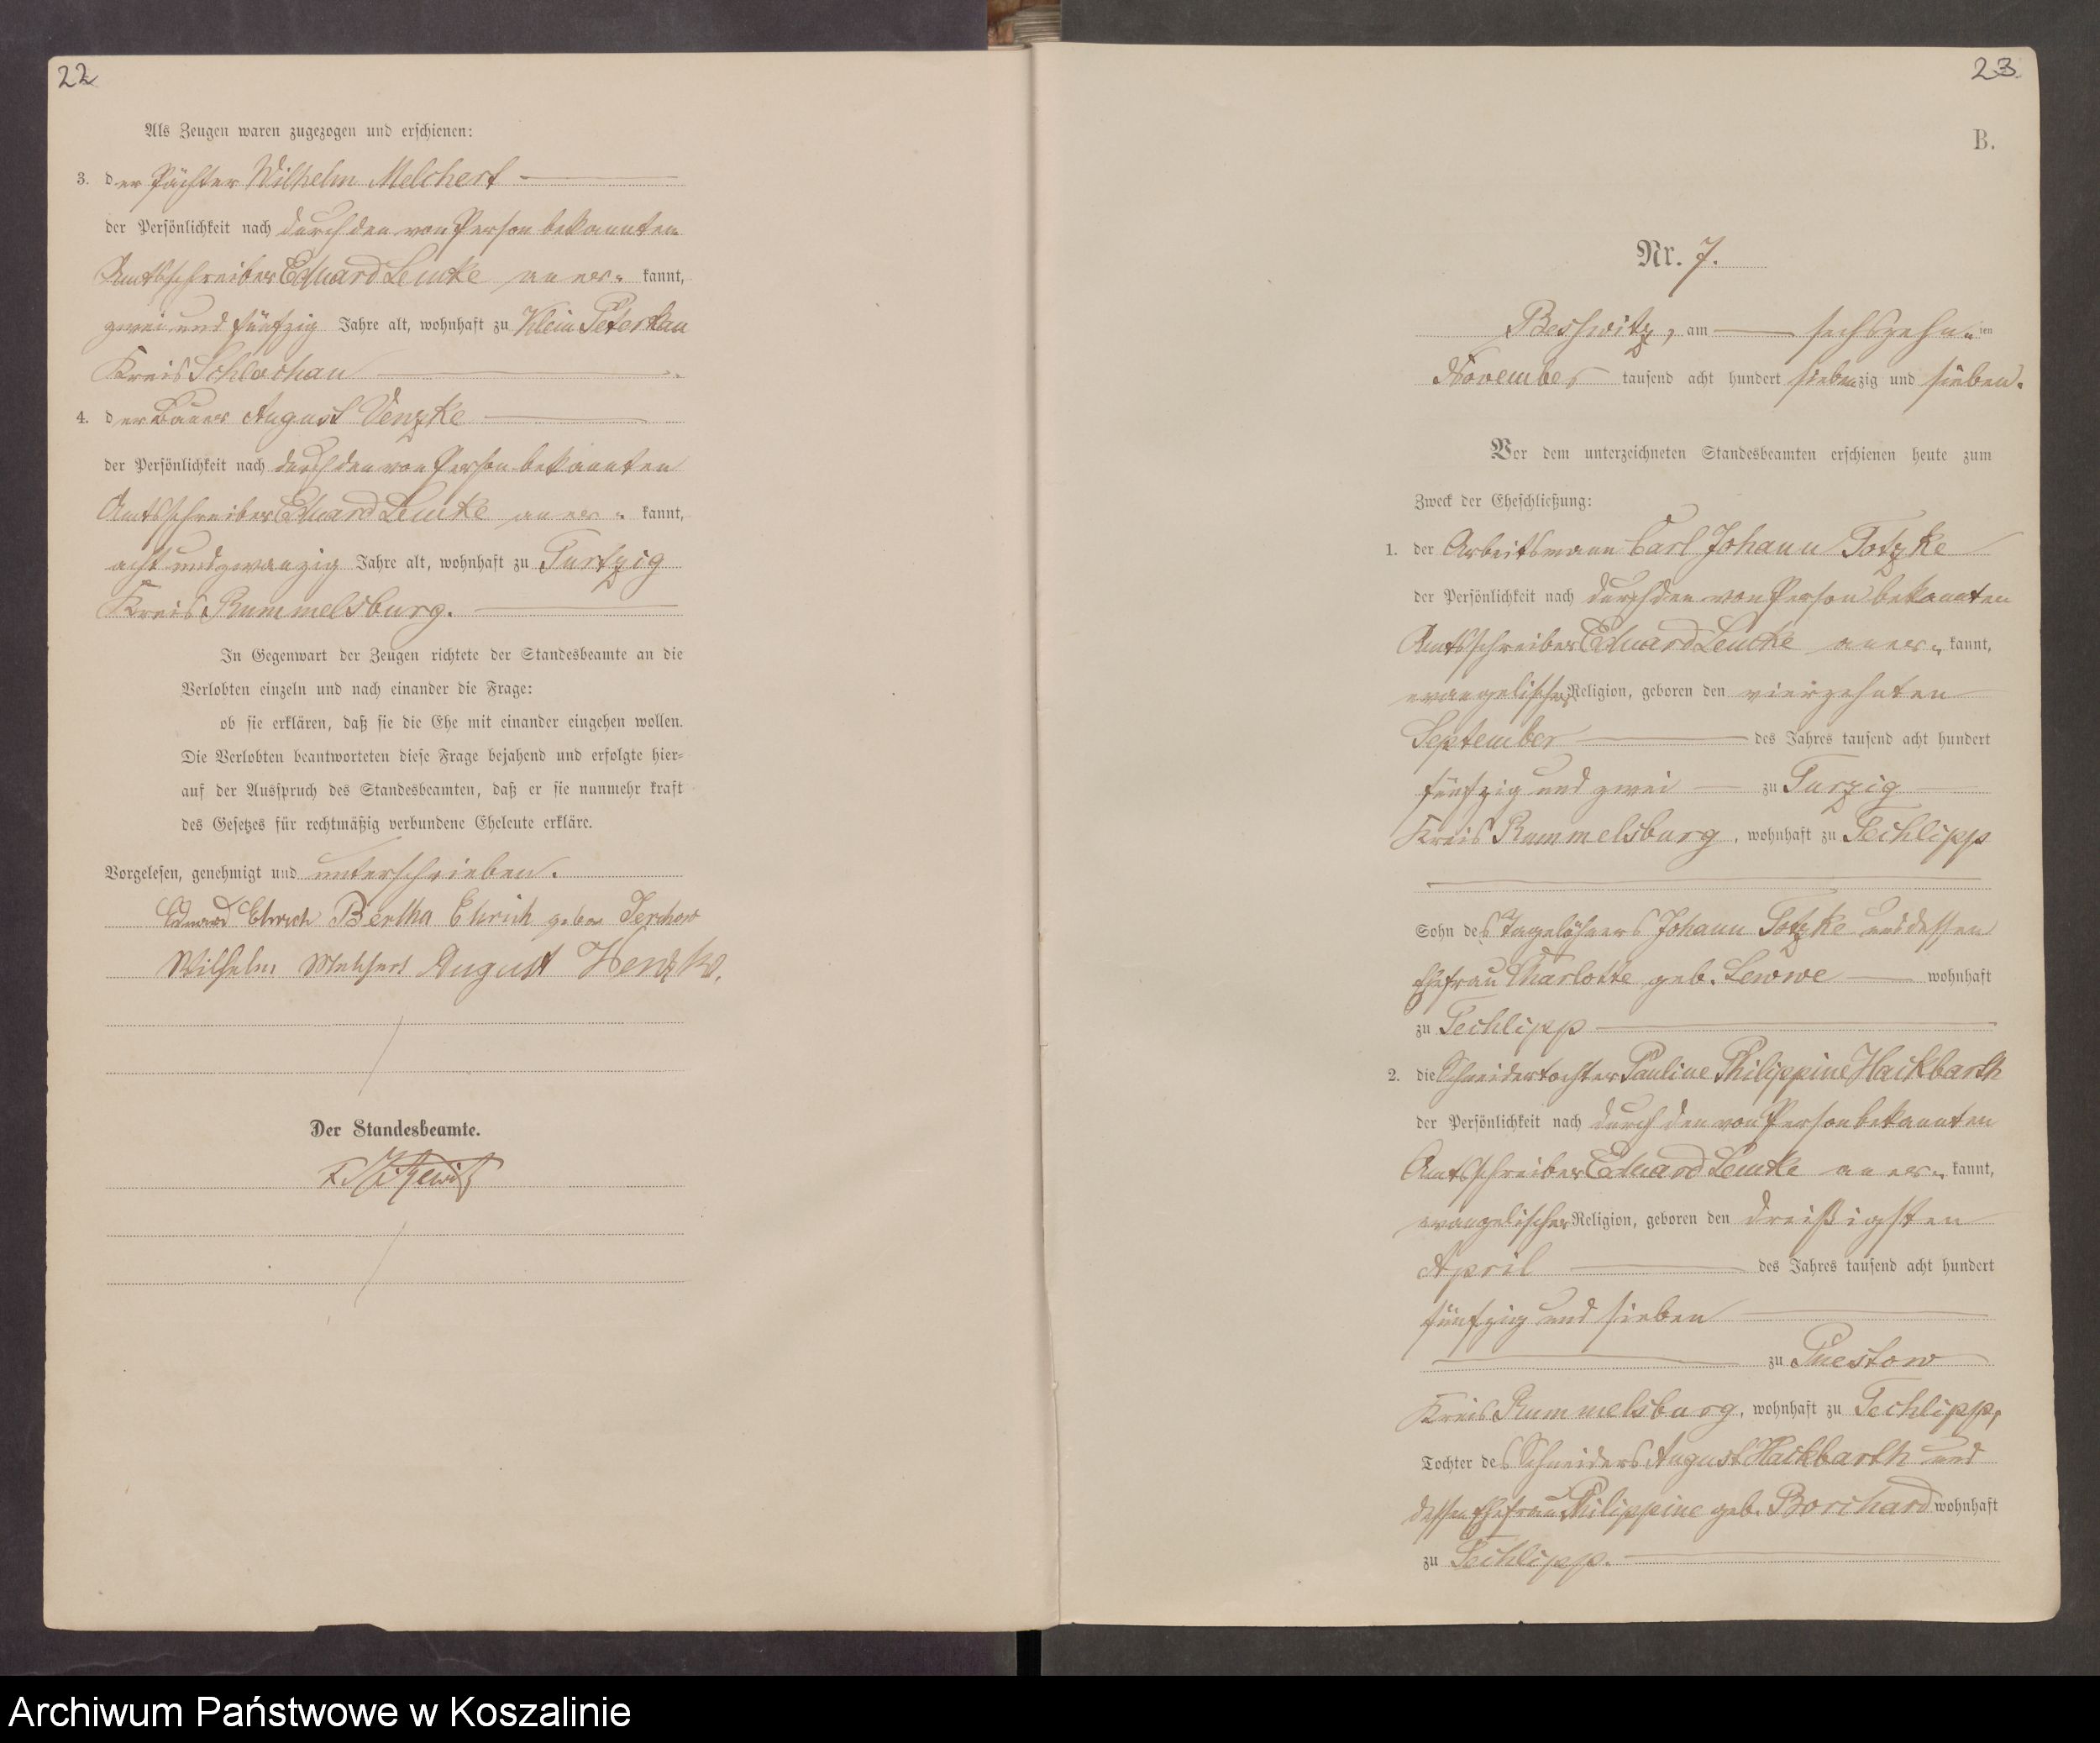 22
Als Zeugen waren zugezogen und erschienen:
3. der Pächter Wilhelm Melchert
der Persönlichkeit nach durch den von Person bekannten
Amtsschreiber Eduard Lemke aner- kannt,
zwei und fünfzig Jahre alt, wohnhaft zu Klein Peterkau
Kreis Schlochau
4. der Bauer August Venzke
der Persönlichkeit nach durch den von Person bekannten
Amtsschreiber Eduard Lemke aner- kannt,
acht und zwanzig Jahre alt, wohnhaft zu Turtzig
Kreis Rummelsburg.
In Gegenwart der Zeugen richtete der Standesbeamte an die
Verlobten einzeln und nach einander die Frage:
ob sie erklären, daß sie die Ehe mit einander eingehen wollen.
Die Verlobten beantworteten diese Frage bejahend und erfolgte hier-
auf der Ausspruch des Standesbeamten, daß er sie nunmehr kraft
des Gesetzes für rechtmäßig verbundene Eheleute erkläre.
Vorgelesen, genehmigt und unterschrieben.
Eduard Ehrich Bertha Ehrich
Wilhelm Melchert August Venzke.
Der Standesbeamte.
23
B.
Nr. 7.
Beßwitz, am sechszehn- ten
November tausend acht hundert siebenzig und sieben.
Vor dem unterzeichneten Standesbeamten erschienen heute zum
Zweck der Eheschließung:
1. der Arbeitsmann Carl Johann Totzke
der Persönlichkeit nach durch den von Person bekannten
Amtsschreiber Eduard Lemke aner- kannt,
evangelischer Religion, geboren den vierzehnten
September des Jahres tausend acht hundert
fünfzig und zwei zu Turzig
Kreis Rummelsburg, wohnhaft zu Techlipp
Sohn des Tagelöhners Johann Totzke und dessen
Ehefrau Charlotte geb. Lewwe wohnhaft
zu Techlipp
2. die Schneidertochter Pauline Philippine Hackbarth
der Persönlichkeit nach durch den von Person bekannten
Amtsschreiber Eduard Lemke aner- kannt,
evangelischer Religion, geboren den dreißigsten
April des Jahres tausend acht hundert
fünfzig und sieben
zu Puestow
Kreis Rummelsburg, wohnhaft zu Techlipp,
Tochter des Schneiders August Hackbarth und
dessen Ehefrau Philippine geb. Borchard wohnhaft
zu Techlipp.
Archiwum Państwowe w Koszalinie